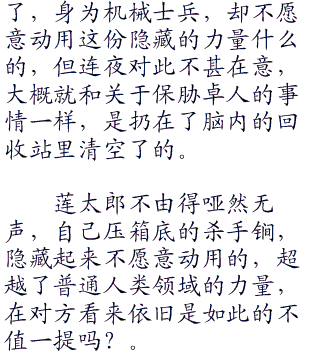 了，身为机械士兵，却不愿
意动用这份隐藏的力量什么
的，但连夜对此不甚在意，
大概就和关于保胁卓人的事
情一样，是扔在了脑内的回
收站里清空了的。
莲太郎不由得哑然无
声，自己压箱底的杀手锏，
隐藏起来不愿意动用的，超
越了普通人类领域的力量，
在对方看来依旧是如此的不
值一提吗？。